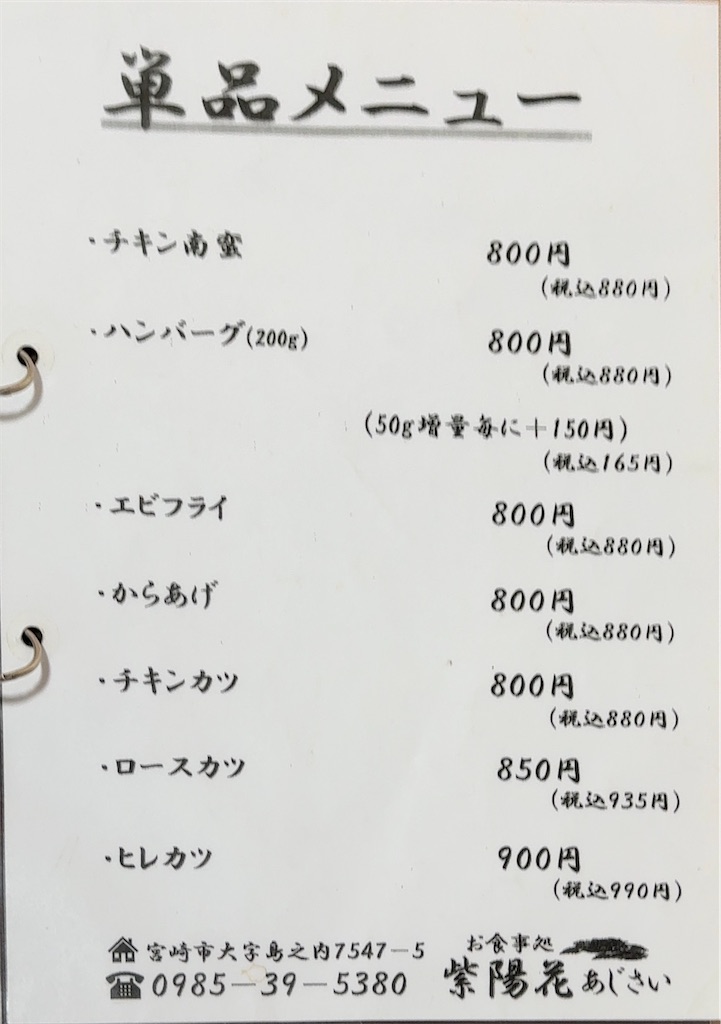 単品メニュー
・チキン南蛮 800円
(税込880円)
・ハンバーグ(200g) 800円
(税込880円)
(50g増量毎に＋150円)
(税込165円)
・エビフライ 800円
(税込880円)
・からあげ 800円
(税込880円)
・チキンカツ 800円
(税込880円)
・ロースカツ 850円
(税込935円)
・ヒレカツ 900円
(税込990円)
宮崎市大字島之内7547－5
0985－39－5380
お食事処
紫陽花 あじさい